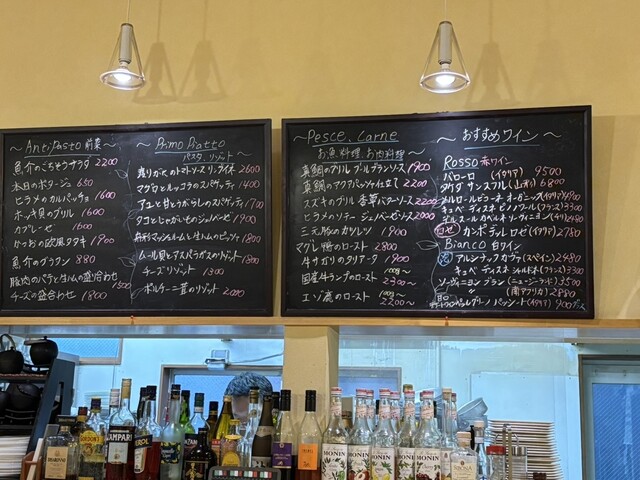 ～AntiPasto 前菜～
魚介のごちそうサラダ 2200
本日のポタージュ 650
ヒラメのカルパッチョ 1600
ホッキ貝のグリル 1600
カプレーゼ 1600
かつおの欧風タタキ 1900
魚介のグラタン 880
豚肉のパテと生ハムの盛合わせ 1500
チーズの盛合わせ 1800
Primo Piatto
パスタ、リゾット
トマトソース 2600
ルッコラのスパゲッティ 1400
とうがらしのスパゲッティ 1700
タコとじゃがいものジェノベーゼ 1900
マッシュルームと生ハムのピッツァ 1800
ムール貝とアスパラガスのドリア 1800
チーズリゾット 1300
ポルチーニ茸のリゾット 2000
～Pesce, Carne～
お魚料理、お肉料理
真鯛のグリル ブールブランソース 1900
真鯛のアクアパッツァ仕立て 2200
スズキのグリル 香草バターソース 2000
ヒラメのソテー ジェノベーゼソース 2000
三元豚のカツレツ 1900
マグレ鴨のロースト 2800
牛サガリのタリアータ 1900
国産牛ランプのロースト 100g～ 2300～
エゾ鹿のロースト 100g～ 2200～
～おすすめワイン～
Rosso 赤ワイン
バローロ (イタリア) 9500
タケダ サンスフル (山形) 6800
キュベ・ディスネ ピノノワール (フランス) 3300
ロゼ カンポ ロゼ (イタリア) 2780
Bianco 白ワイン
泡 カヴァ (スペイン) 2480
キュベ ディスネ シャルドネ (フランス) 3300
ソーヴィニヨンブラン (ニュージーランド) 3500
〃 (南アフリカ) 2880
パッシート (イタリア) 900
CAMPARI
MONIN
MONIN
MONIN
MONIN
MONIN